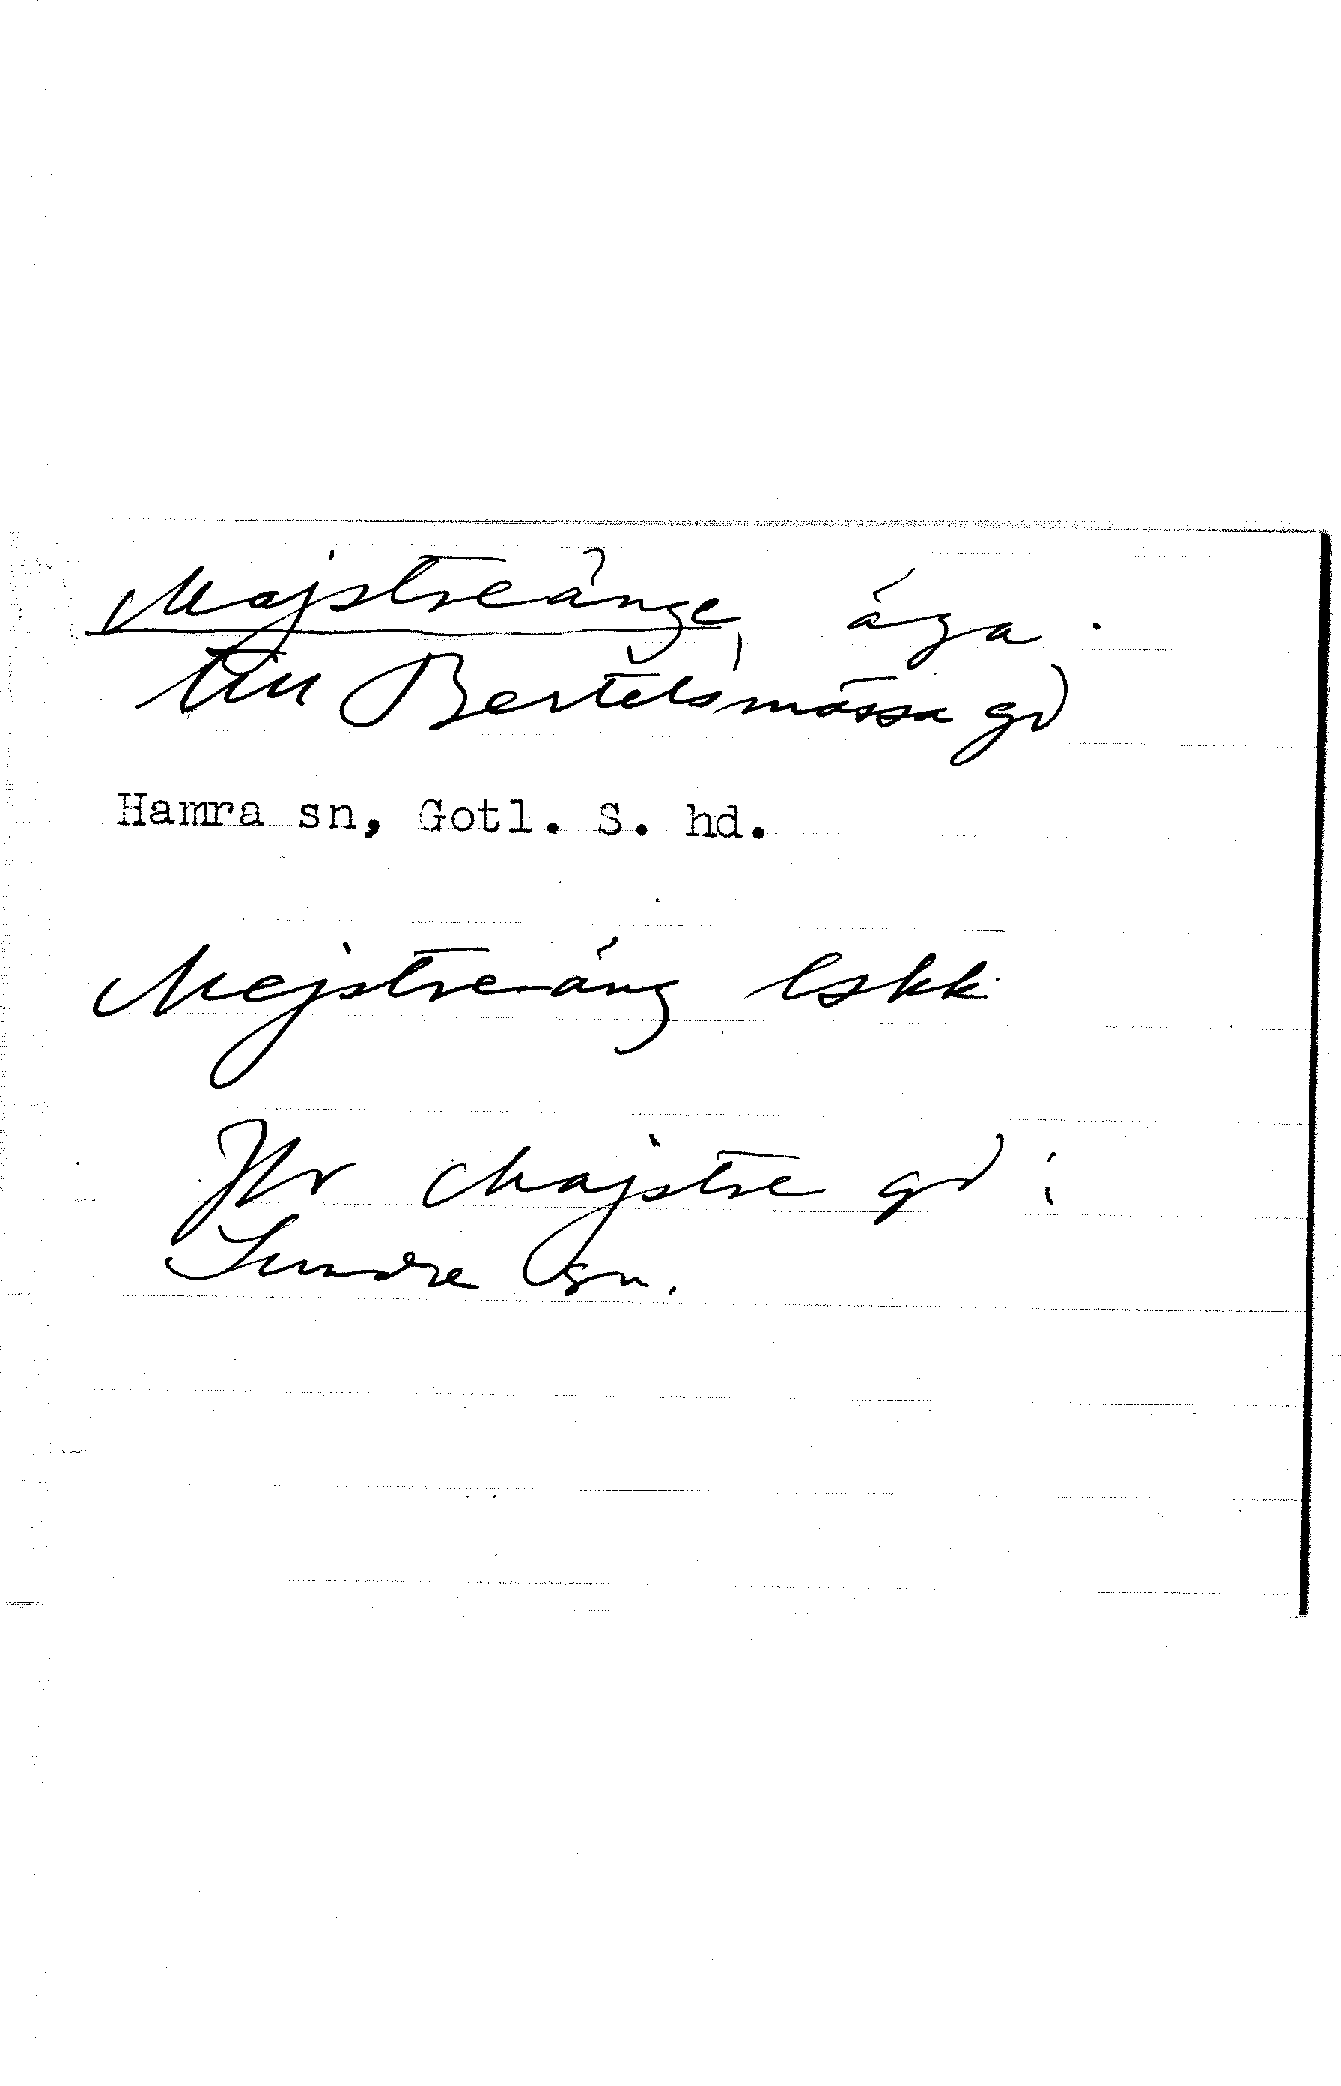 Majstreänge, äga
till Bertelsmässa gd
Hamra sn, Gotl. S. hd.
Mejstre-äng lskk
Jfr Majstre gd i
Sundre sn.